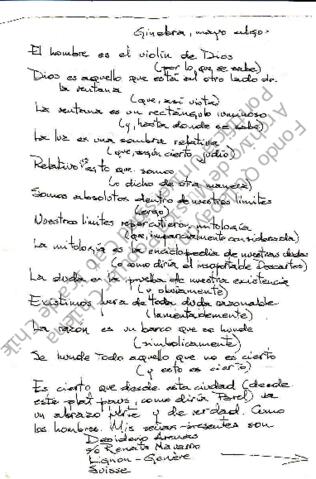 Ginebra, mayo
El hombre es el violín de Dios
(por lo que se sabe)
Dios es aquello que está al otro lado de
la ventana
(que, así vista)
La ventana es un rectángulo luminoso
(y, hasta donde se sabe)
La luz es una sombra relativa
(que, según cierto judío)
Relativo es lo que somos
(o dicho de otra manera)
Somos absolutos dentro de nuestros límites
(ergo)
Nuestros límites mitología
(que, imparcialmente considerada)
La mitología es la enciclopedia de nuestras dudas
(o como diría el insoportable Descartes)
La duda es la prueba de nuestra existencia
(y obviamente)
Existimos fuera de toda duda razonable
(lamentablemente)
La razón es un barco que se hunde
(simbólicamente)
Se hunde todo aquello que no es cierto
(y esto es cierto)
Es cierto que desde esta ciudad (desde
este plat pays, como diría Brel) va
un abrazo fuerte y de verdad. Como
los hombres. Mis señas presentes son
Desiderio Arenas
c/o Renata Navarro
Lignon - Genève
Suisse
Fondo